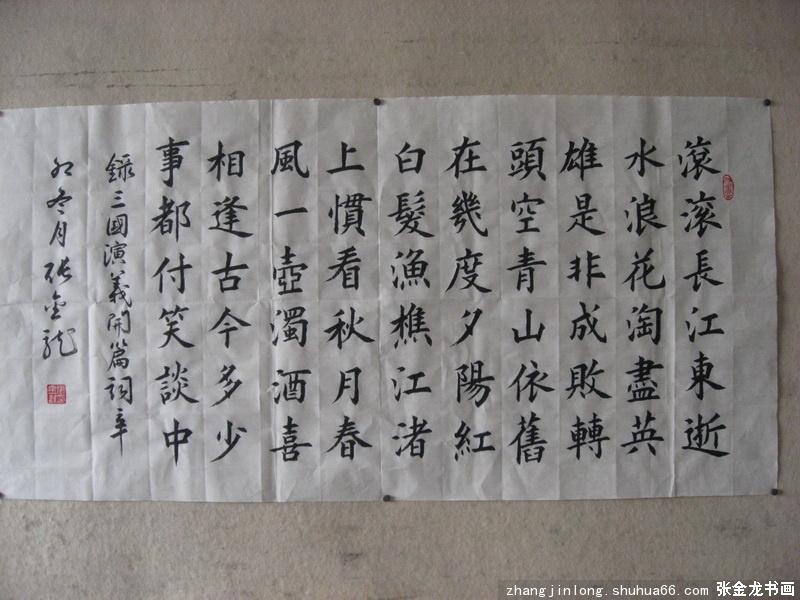 滾滾長江東逝
水浪花淘盡英
雄是非成敗轉
頭空青山依舊
在幾度夕陽紅
白髮漁樵江渚
上慣看秋月春
風一壺濁酒喜
相逢古今多少
事都付笑談中
錄三國演義開篇詞辛
卯冬月張金龍
zhangjinlong.shuhua66.com 张金龙书画